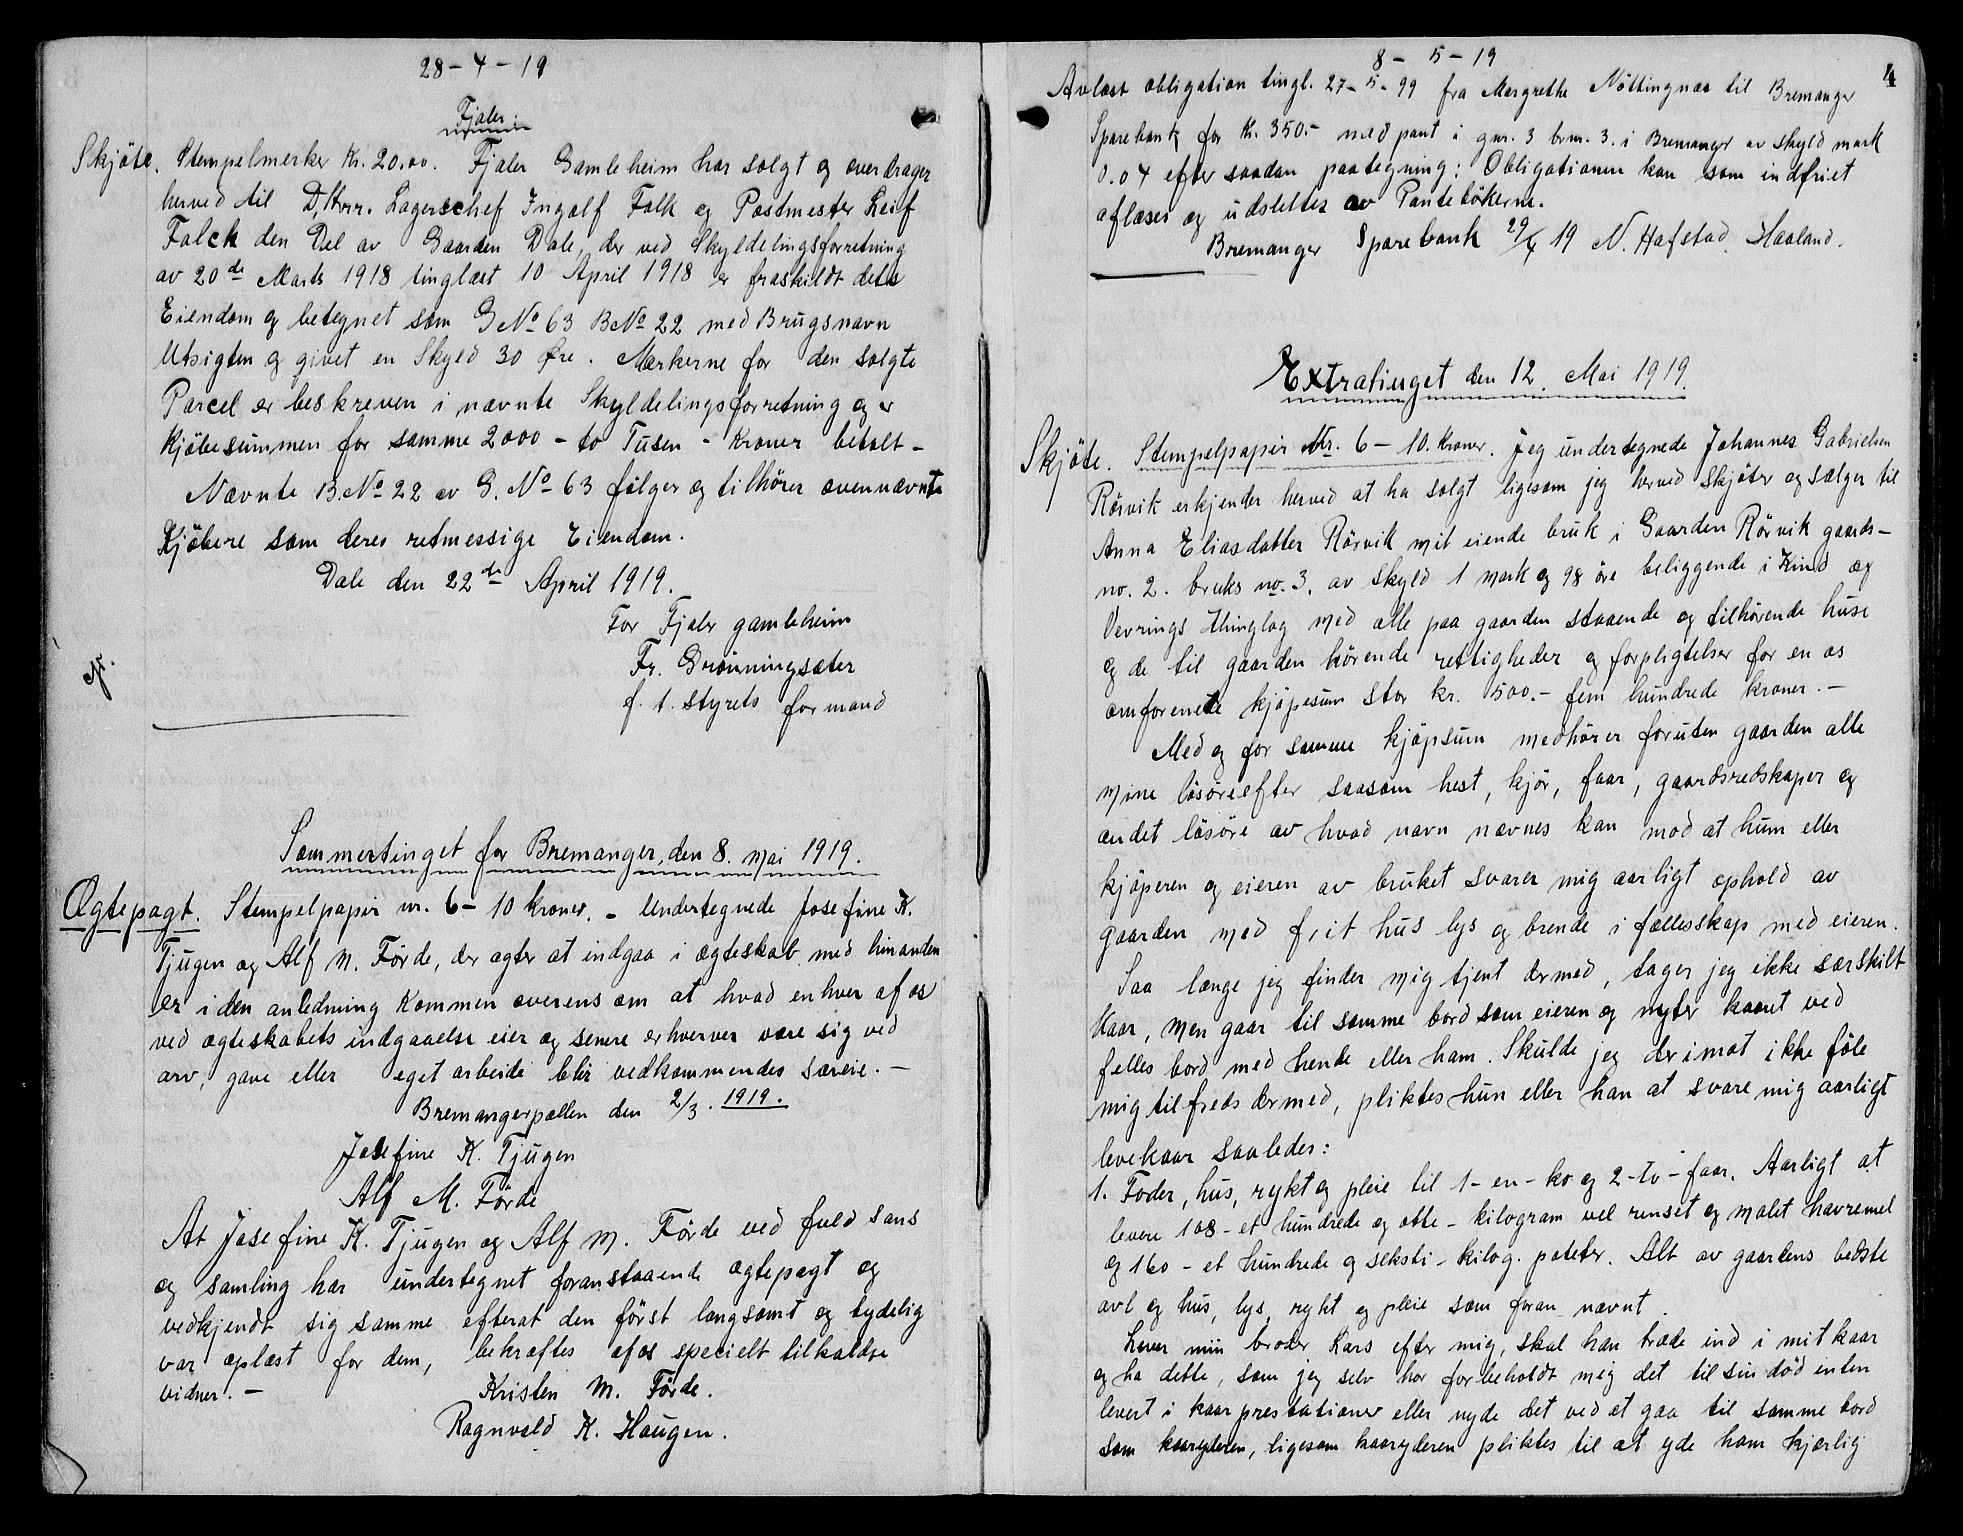 28-4-19
Fjaler.
Skjöte. Stempelmerker Kr. 20.00. Fjaler Gamleheim har solgt og overdrager
herved til D,Hrr. Lagerschef Ingolf Falk og Postmester Leif
Falck den Del av Gaarden Dale, der ved Skyldelingsforretning
av 20de Marts 1918 tinglæst 10 April 1918 er fraskildt dets
Eiendom og betegnet som G No 63 B No 22 med Brugsnavn
Utsigten og givet en Skyld 30 Øre. Merkerne for den solgte
Parcel er beskreven i nævnte Skyldelingsforretning og er
Kjöbesummen for samme 2000 - to Tusen - Kroner betalt -
Nævnte B. No 22 av G. No 63 fölger og tilhörer ovennævnte
Kjöbere som deres retmessige Eiendom.
Dale den 22de April 1919.
For Fjaler gamleheim
Fr. Grönningsæter
f. t. styrets formand
Sommertinget for Bremanger, den 8. mai 1919.
Ægtepagt. Stempelpapir nr. 6 - 10 kroner. - Undertegnede Josefine K.
Tjugen og Alf M. Förde, der agter at indgaa i ægteskab med hinanden
er i den anledning kommen overens om at hvad enhver af os
ved ægteskabets indgaaelse eier og senere erhverver være sig ved
arv, gave eller eget arbeide blir vedkommendes særeie. -
Bremangerpollen den 2/3. 1919.
Josefine K. Tjugen
Alf M. Förde
At Josefine K. Tjugen og Alf M. Förde ved fuld sans
og samling har undertegnet foranstaaende ægtepagt og
vedkjendt sig samme efterat den först langsomt og tydelig
var oplæst for dem, bekræftes af os specielt tilkaldte
vidner. -
Kristen M. Förde.
Ragnvald K. Haugen.
8-5-19
4
Avlæst obligation tingl. 27-5-99 fra Margrethe Nöttingnes til Bremanger
Sparebank for Kr. 350.- med pant i gnr. 3 brnr. 3. i Bremanger av skyld mark
0.04 efter saadan paategning: Obligationen kan som indfriet
aflæses og udslettes av Pantebökerne.
Bremanger Sparebank 29/4 19 N. Hafstad. Haaland.
Extratinget den 12. Mai 1919.
Skjöte. Stempelpapir Nr. 6 - 10. kroner. Jeg undertegnede Johannes Gabrielsen
Rörvik erkjender herved at ha solgt ligesom jeg herved skjöter og sælger til
Anna Eliasdatter Rörvik mit eiende bruk i Gaarden Rörvik gaards-
no. 2. bruks no. 3. av skyld 1 mark og 98 öre beliggende i Kind og
Vevrings thinglag med alle paa gaarden staaende og tilhörende huse
og de til gaarden hörende rettigheder og forpligtelser for en os
omforenete kjöpesum stor kr. 500.- fem hundrede kroner. -
Med og for samme kjöpsum medhörer foruten gaarden alle
mine lösöreefter saasom hest, kjör, faar, gaardsredskaper og
andet lösöre av hvad navn nævnes kan mod at hun eller
kjöperen og eieren av bruket svarer mig aarligt ophold av
gaarden med frit hus lys og brende i fællesskap med eieren.
Saa længe jeg finder mig tjent dermed, tager jeg ikke særskilt
Kaar, men gaar til samme bord som eieren og nyter kaaret ved
felles bord med hende eller ham. Skulde jeg derimot ikke föle
mig tilfreds dermed, pliktes hun eller han at svare mig aarligt
levekaar saaledes:
1. Foder, hus, rykt og pleie til 1 - en - ko og 2 - to - faar. Aarligt at
levere 108 - et hundrede og otte - kilogram vel renset og malet havremel
og 160 - et hundrede og seksti - kilog. poteter. Alt av gaardens bedste
avl og hus, lys, rykt og pleie som foran nævnt.
Lever min broder Lars efter mig, skal han træde ind i mit kaar
og ha dette, som jeg selv har forbeholdt mig det til sin död enten
levert i kaarprestationer eller nyde det ved at gaa til samme bord
som kaaryderen, ligesom kaaryderen pliktes til at yde ham kjærlig